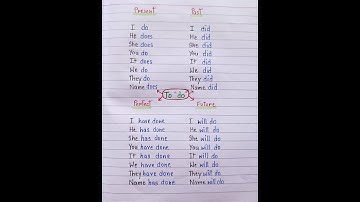 Present Past
I do I did
He does He did
She does She did
You do You did
It does It did
We do We did
They do They did
Name does Name did
To "do"
Perfect Future
I have done I will do
He has done He will do
She has done She will do
You have done You will do
It has done It will do
We have done We will do
They have done They will do
Name has done Name will do